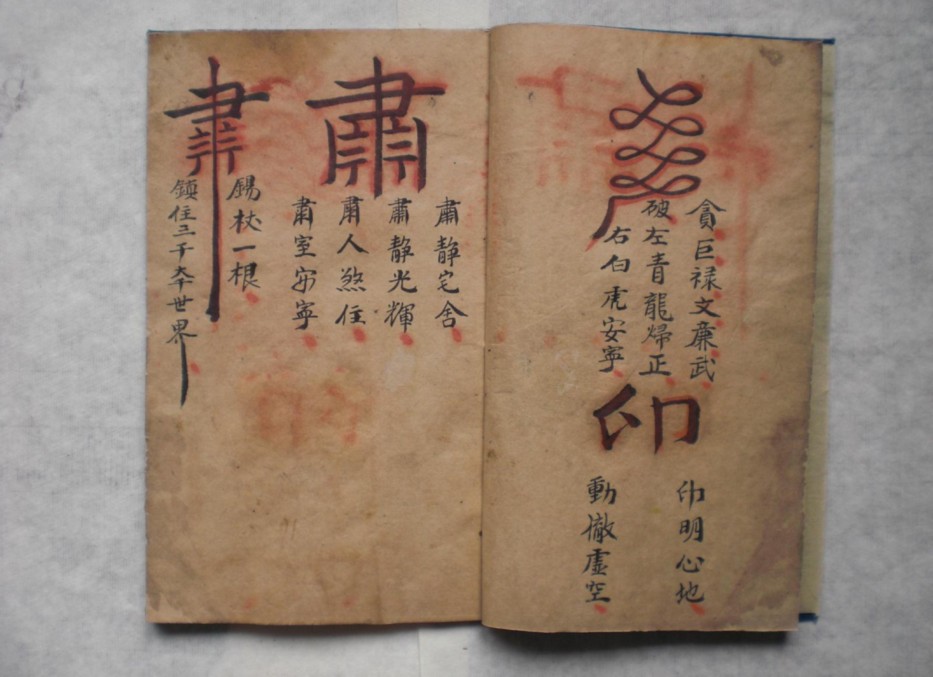 貪巨禄文廉武
破左青龍歸正
右白虎安寧
印
印明心地
動徹虛空
肅
肅靜宅舍
肅靜光輝
肅人煞住
肅室安寧
錫杖一根
鎮住三千大千世界